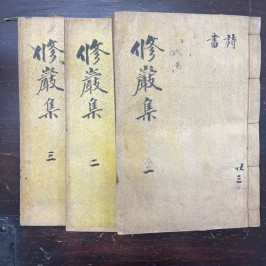 修巖集
一
詩
書
修巖集
二
修巖集
三